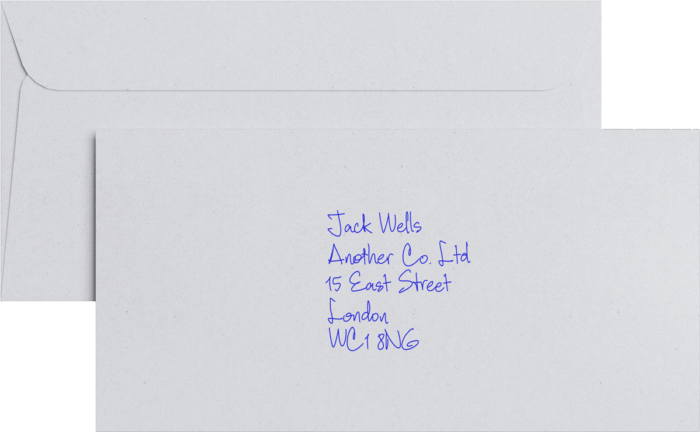 Jack Wells
Another Co. Ltd
15 East Street
London
WC1 8NG